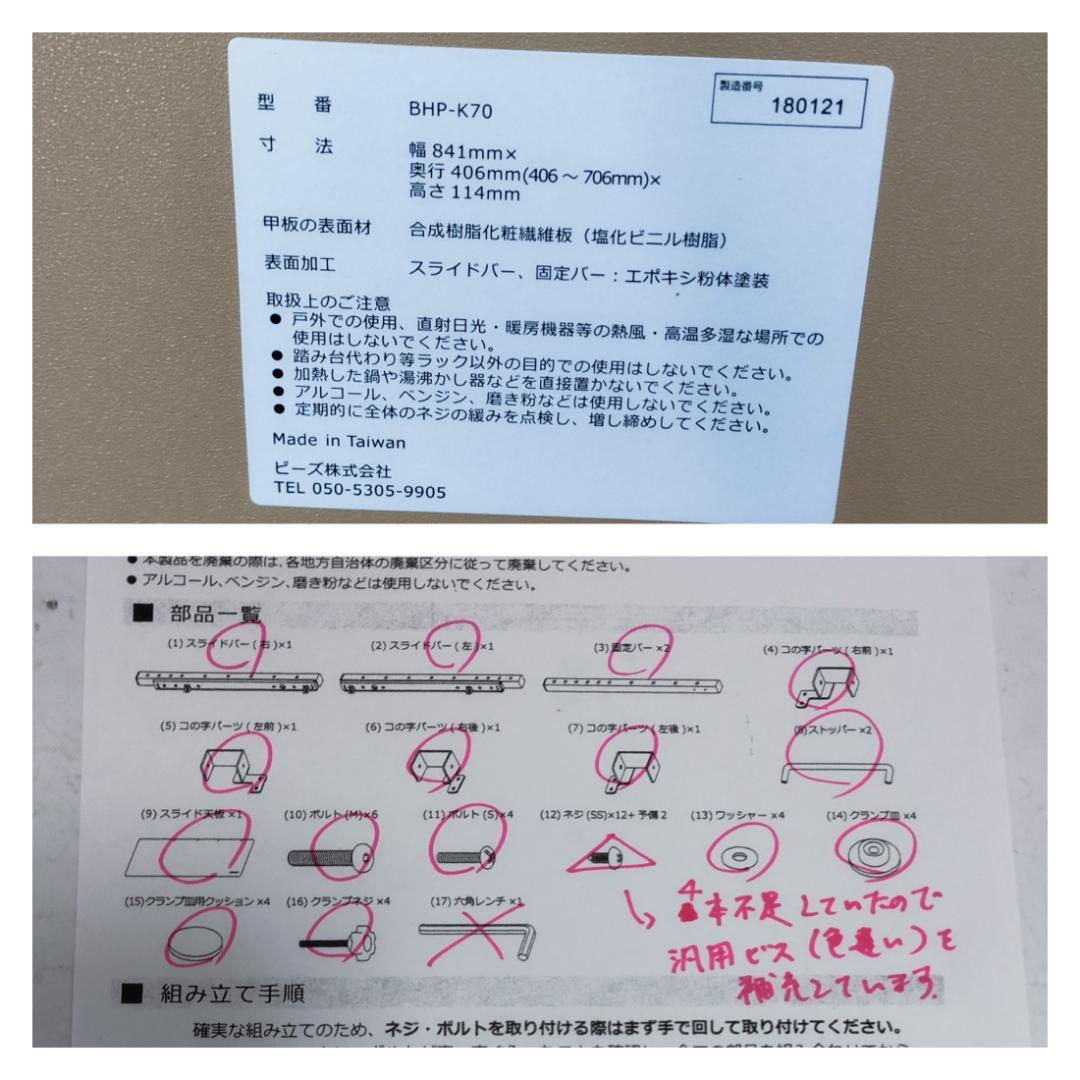 製造番号
180121
型 番 BHP-K70
寸 法 幅 841mm×
奥行 406mm(406 ～ 706mm)×
高さ 114mm
甲板の表面材 合成樹脂化粧繊維板（塩化ビニル樹脂）
表面加工 スライドバー、固定バー：エポキシ粉体塗装
取扱上のご注意
● 戸外での使用、直射日光・暖房機器等の熱風・高温多湿な場所での
使用はしないでください。
● 踏み台代わり等ラック以外の目的での使用はしないでください。
● 加熱した鍋や湯沸かし器などを直接置かないでください。
● アルコール、ベンジン、磨き粉などは使用しないでください。
● 定期的に全体のネジの緩みを点検し、増し締めしてください。
Made in Taiwan
ビーズ株式会社
TEL 050-5305-9905
● 本製品を廃棄の際は、各地方自治体の廃棄区分に従って廃棄してください。
● アルコール、ベンジン、磨き粉などは使用しないでください。
■ 部品一覧
(1) スライドバー ( 右 )×1
(2) スライドバー ( 左 )×1
(3) 固定バー ×2
(4) コの字パーツ ( 右前 )×1
(5) コの字パーツ ( 左前 )×1
(6) コの字パーツ ( 右後 )×1
(7) コの字パーツ ( 左後 )×1
(8)ストッパー ×2
(9) スライド天板 ×1
(10) ボルト (M)×6
(11) ボルト (S)×4
(12) ネジ (SS)×12+ 予備 2
(13) ワッシャー ×4
(14) クランプ皿 ×4
(15)クランプ皿用クッション ×4
(16) クランプネジ ×4
(17) 六角レンチ ×1
4本不足していたので
汎用ビス（色違い）を
補充しています。
■ 組み立て手順
確実な組み立てのため、ネジ・ボルトを取り付ける際はまず手で回して取り付けてください。